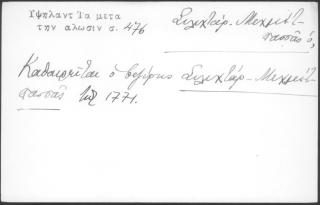 Υψηλαντ Τα μετα
την αλωσιν σ. 476
Σιλιχτάρ-Μεχμέτ-
πασσᾶς ὁ,
Καθαιρεῖται ὁ βεζύρης Σιλιχτάρ-Μεχμέτ-
πασσᾶς τῷ 1771.